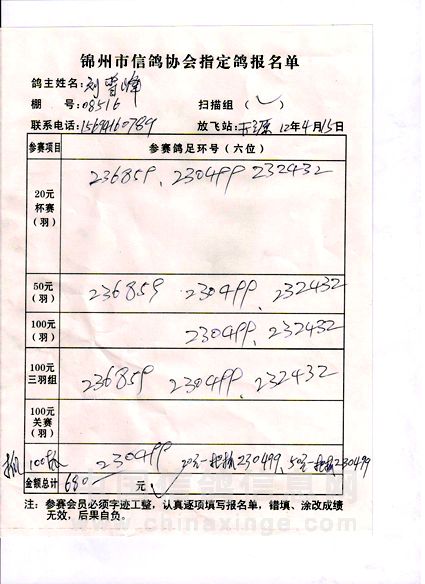 锦州市信鸽协会指定鸽报名单
鸽主姓名:刘
棚 号:08516 扫描组(✓)
联系电话:15694160789 放飞站: 12年4月15日
参赛项目 参赛鸽足环号(六位)
20元杯赛(羽) 236859、230499 232432
50元(羽) 236859 230499、232432
100元(羽) 230499、232432
100元三羽组 236859 230499、232432
100元关赛(羽)
100 230499 20元一把抓230499、50元一把抓230499
金额总计 680 元 ✓
注:参赛会员必须字迹工整,认真逐项填写报名单,错填、涂改成绩
无效,后果自负。
中国信鸽信息网
www.chinaxinge.com